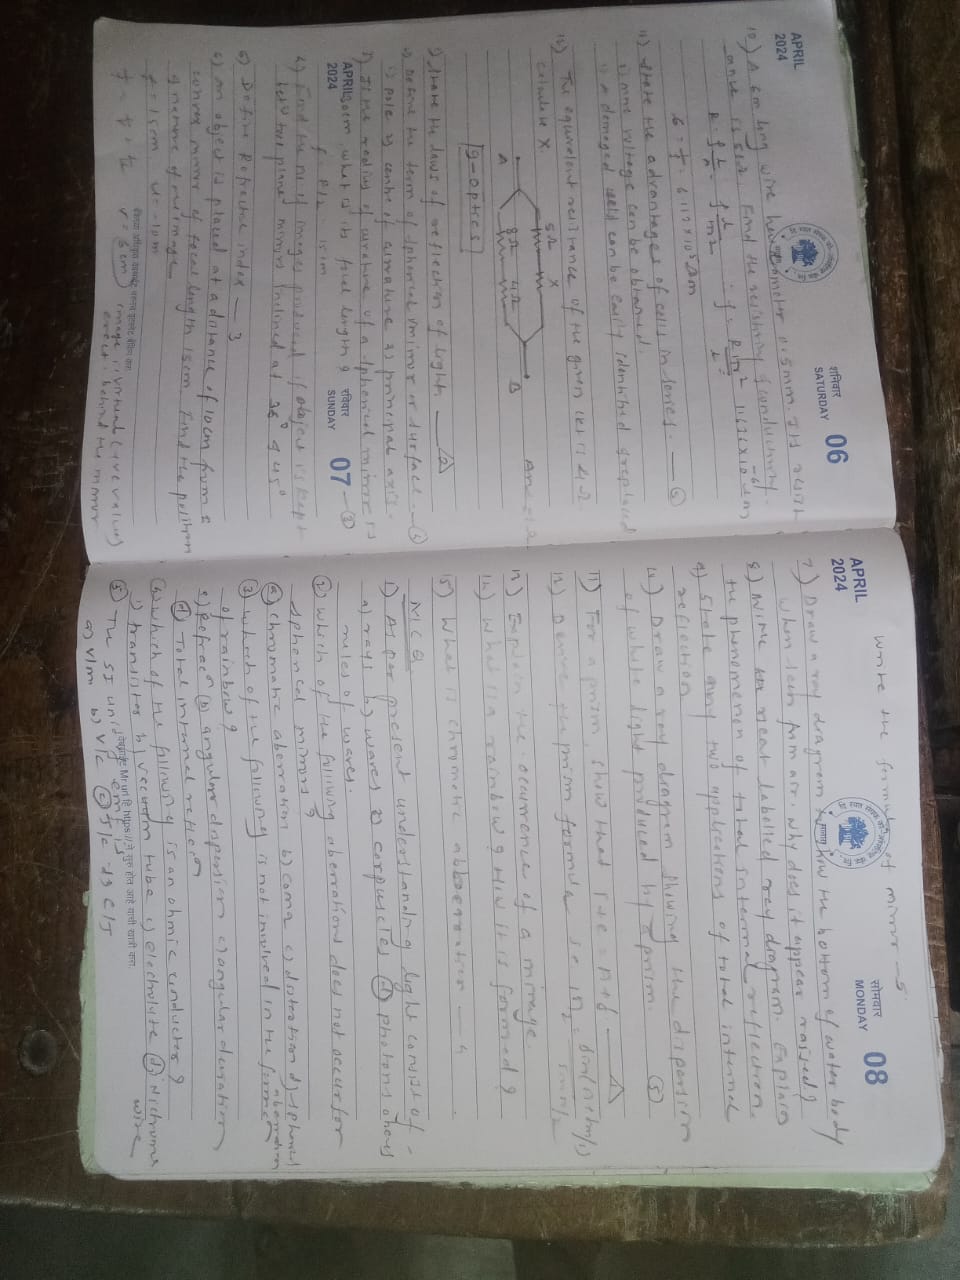 APRIL
2024
शनिवार
SATURDAY
06
10) A 6m long wire has diameter 0.5mm. Its resist
ance is 50Ω. Find the resistivity & conductivity.
11) State the advantages of cells in series. — 6
1) more voltage can be obtained.
2) A damaged cell can be easily identified & replaced
12) The equivalent resistance of the given ckt is 4Ω.
Calculate X.
5Ω X
A 8Ω 4Ω B
9-Optics
1) State the laws of reflection of light. — 2
2) Define the term of spherical mirror or surface.
1) pole 2) centre of curvature 3) principal axis.
3) If the radius of curature of a spherical mirror is
APRIL
2024
30cm, what is its focal length?
रविवार
SUNDAY
07
f = R/2 = 15cm
4) Find the no of images produced if object is kept
betn two plane mirrors inclined at 36° & 45°
5) Define Refractive index — 3
6) An object is placed at a distance of 10cm from a
convex mirror of focal length 15cm. Find the position
& nature of the image
f = 15cm, u = -10cm
v = 6cm
image is virtual (+ve value)
erect behind the mirror
Write the formula of mirror — 5
APRIL
2024
सोमवार
MONDAY
08
7) Draw a ray diagram to show the bottom of water body
when seen from air. Why does it appear raised?
8) With neat labelled ray diagram. Explain
the phenomenon of total internal reflection.
9) State any two applications of total internal
reflection
10) Draw a ray diagram showing the dispersion
of white light produced by a prism. 5
11) For a prism, show that i+e = A+δ
12) Derive the prism formula
13) Explain the occurrence of a mirage.
14) What is a rainbow? How it is formed?
15) What is chromatic abberration — 4
MCQ
1) As per present understanding light consist of -
a) rays b) waves c) corpuscles d) photons obeys
rules of waves.
2) which of the following aberrations does not occur for
spherical mirrors?
a) Chromatic aberration b) coma c) distortion d) spherical
aberration
3) which of the following is not involved in the formn
of rainbow?
a) Refracn b) angular dispersion c) angular deviation
d) Total internal reflecn
4) which of the following is an ohmic conductor?
a) transistor b) vacuum tube c) electrolyte d) Nichrome
wire
5) The SI unit of emf is
a) V/m b) V/C c) J/C d) C/J